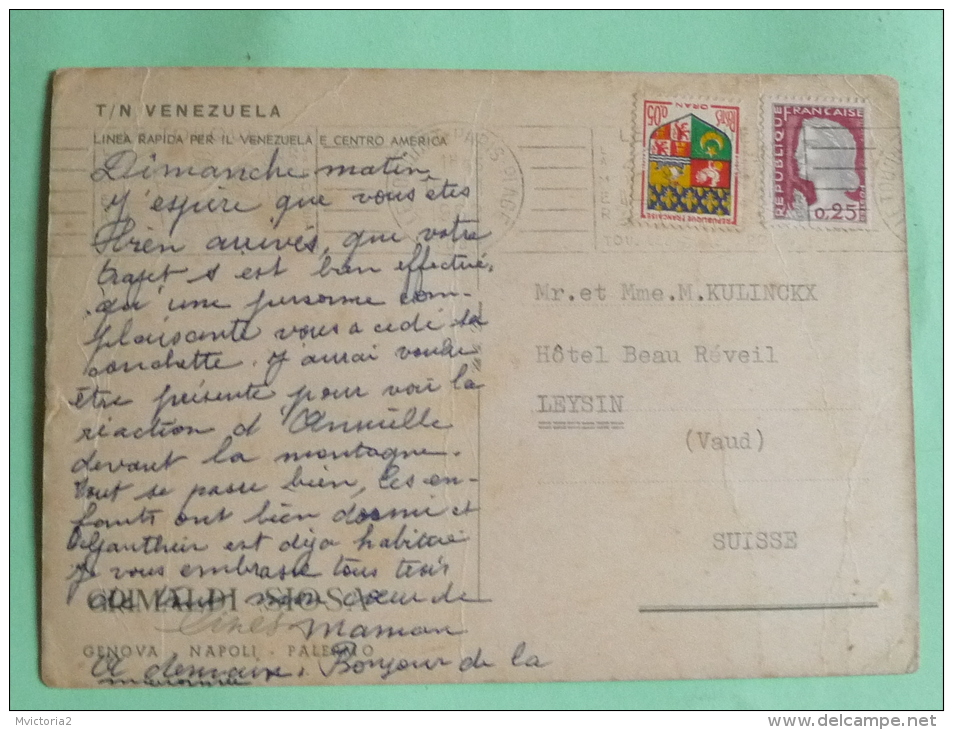 T/N VENEZUELA
LINEA RAPIDA PER IL VENEZUELA E CENTRO AMERICA
Dimanche matin
J'espère que vous êtes
bien arrivés, que votre
trajet s'est bien effectué,
qu'une personne com-
plaisante vous a cédé sa
couchette. J'aurai voulu
être présente pour voir la
réaction d'Annielle
devant la montagne.
Tout se passe bien, les en-
fants ont bien dormi et
Gauthier est déjà habitué
Je vous embrasse tous trois
de tout mon cœur de
Maman
A demain. Bonjour de la
GRIMALDI - SIOSA
Lines
GENOVA - NAPOLI - PALERMO
ORAN
0,05
POSTES
REPUBLIQUE FRANÇAISE
REPUBLIQUE FRANÇAISE
0,25
Mr. et Mme. M. KULINCKX
Hôtel Beau Réveil
LEYSIN
(Vaud)
SUISSE
Mvictoria2
www.delcampe.net